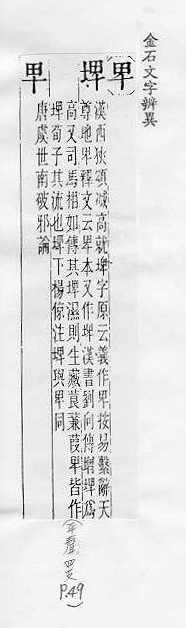 金石文字辨異
埤
漢西狹頌減高就埤字原云義作卑按易繫辭天
尊地卑釋文云卑本又作埤漢書劉向傳增埤爲
高又司馬相如傳其埤濕則生藏莨蒹葭卑皆作
埤荀子其流也埤下楊倞注埤與卑同
唐虞世南破邪論
(平聲 四支
P.49)